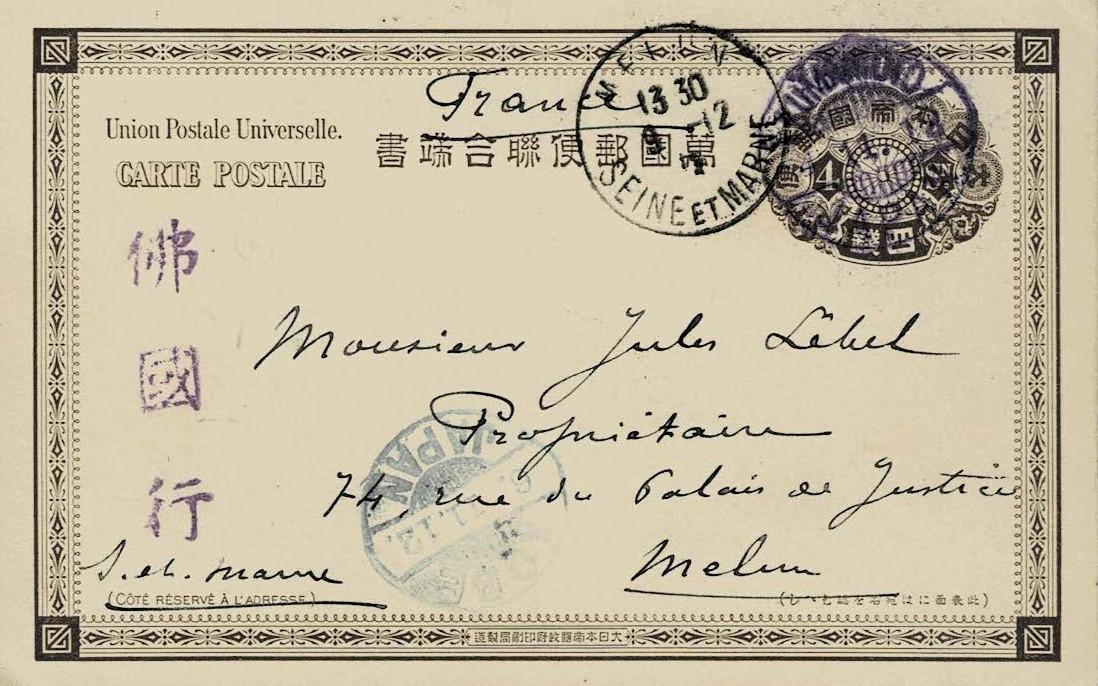 France
Union Postale Universelle.
CARTE POSTALE
書端合聯便郵國萬
MELUN
13 30
9 -12
SEINE ET MARNE
4
SN
佛國行
Monsieur Jules Lebel
Propriétaire
74, rue du Palais de Justice
Melun
S. et. Marne
JAPAN
(CÔTÉ RÉSERVÉ À L'ADRESSE.)
(此表面には宛名を認もへし)
大日本帝國政府印刷局製造